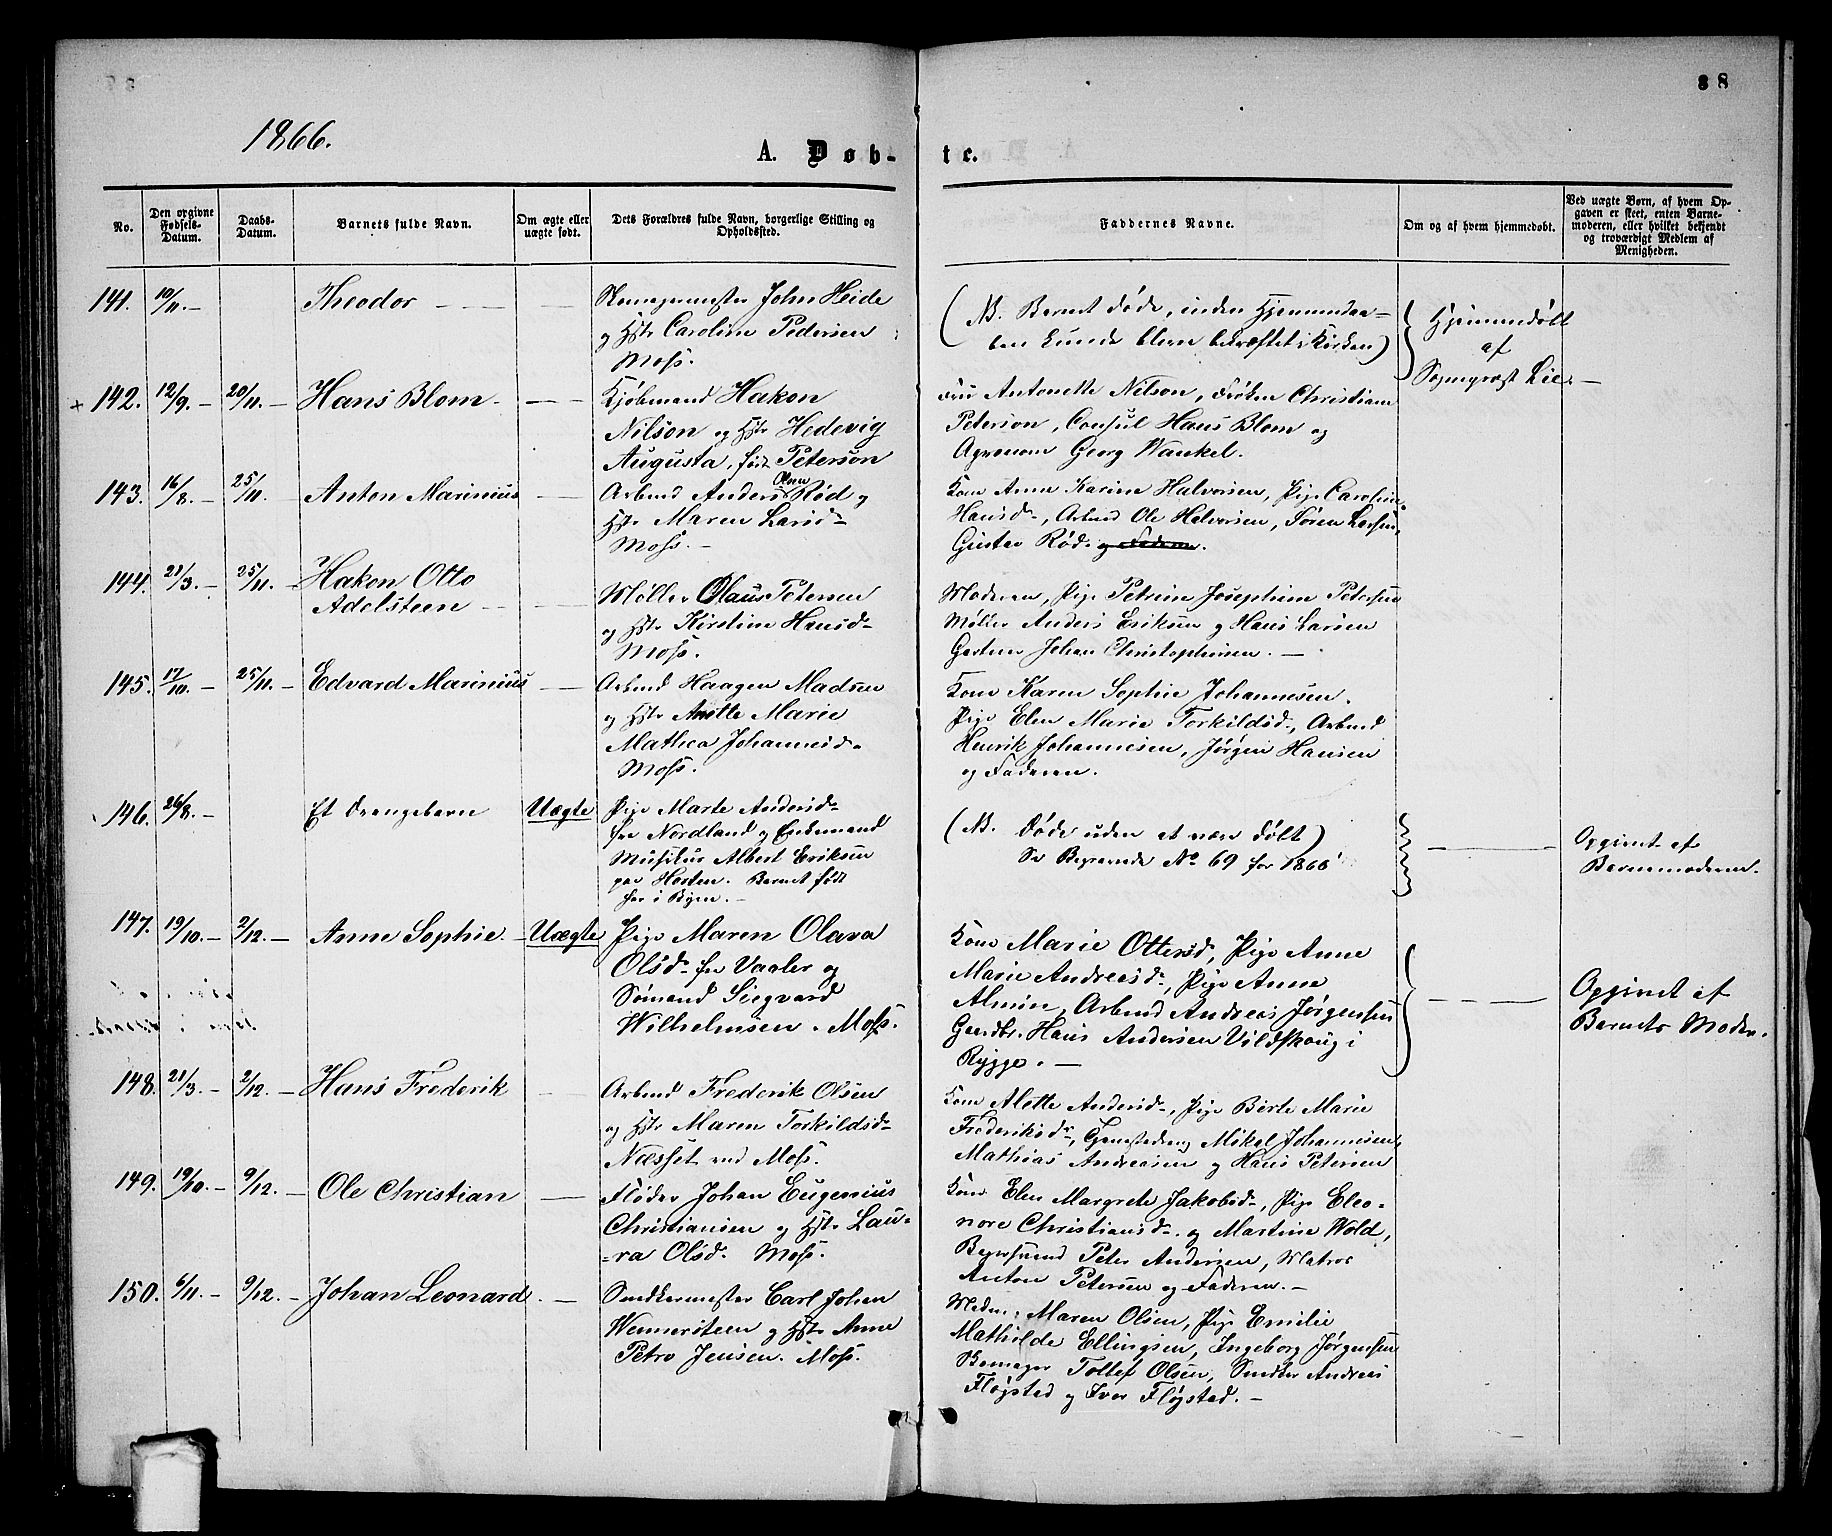 38
1866.
A. Døb-
te.
No.
Den opgivne Fødsels-Datum.
Daabs-Datum.
Barnets fulde Navn.
Om ægte eller uægte født.
Dets Forældres fulde Navn, borgerlige Stilling og Opholdssted.
Faddernes Navne.
Om og af hvem hjemmedøbt.
Ved uægte Børn, af hvem Op-
gaven er skeet, enten Barne-
moderen, eller hvilket bekjendt
og troværdigt Medlem af
Menigheden.
141. 10/11. — Theodor — —
Skomagermester John Heide
og Hstr Caroline Pedersen
Moss.
(NB. Barnet døde, inden Hjemmedaa-
ben kunde blive bekræftet i Kirken)
Hjemmedøbt
af
Sogneprest Lie. —
+ 142. 12/9. — 20/11. — Hans Blom. — —
Kjøbmand Hakon
Nilson og Hstr Hedevig
Augusta, født Peterson
Fru Antonette Nilson, Frøken Christiane
Peterson, Consul Hans Blom og
Agronom Georg Wankel.
143. 16/8. — 25/11. — Anton Marinius —
Arbmd Anders Olsen Rød og
Hstr Maren Larsd.
Moss. —
Kone Anne Karine Halvorsen, Pige Caroline
Hansd., Arbmd Ole Halvorsen, Søren Larsen,
Gustav Rød. og Faderen.
144. 21/3. — 25/11. — Hakon Otto
Adelsteen — —
Møller Olaus Petersen
og Hstr Kirstine Hansd.
Moss.
Moderen, Pige Petrine Josephine Petersen
Møller Anders Eriksen og Hans Larsen
Gartner Johan Christophersen. —
145. 17/10. — 25/11. — Edvard Marinius —
Arbmd Haagen Madsen
og Hstr Anette Marie
Mathea Johannesd.
Moss.
Kone Karen Sophie Johannesen.
Pige Elen Marie Torkildsd., Arbmd
Henrik Johannesen, Jørgen Hansen
og Faderen.
146. 26/8. — Et Drengebarn Uægte
Pige Marte Andersd.
fra Nordland og Enkemand
Musikus Albert Eriksen
paa Horten. Barnet født
her i Byen. —
(NB. Døde uden at være døbt)
Se Begravede No 69 for 1866
Opgivet af
Barnemoderen.
147. 19/10. — 2/12. — Anne Sophie. — Uægte
Pige Maren Olava
Olsd. fra Vaaler og
Sømand Siegvard
Wilhelmsen. Moss.
Kone Marie Ottersd., Pige Anne
Marie Andreasd., Pige Anne
Almin, Arbmd Andreas Jørgensen
Gaardbr. Hans Andersen Vildskoug i
Rygge. —
Opgivet af
Barnets Moder.
148. 21/3. — 2/12. — Hans Frederik —
Arbmd Frederik Olsen
og Hstr Maren Torkildsd.
Næsset ved Moss.
Kone Alette Andersd., Pige Birte Marie
Frederiksd., Tjenestedreng Mikal Johannesen,
Mathias Andreasen og Hans Petersen
149. 19/10. — 9/12. — Ole Christian —
Fløder Johan Eugenius
Christiansen og Hstr Lau-
ra Olsd. Moss.
Kone Elen Margrete Jakobsd., Pige Eleo-
nore Christiansd. og Martine Wold,
Peter Andersen, Matros
Anton Petersen og Faderen. —
150. 6/11. — 9/12. — Johan Leonard. —
Snedkermester Carl Johan
Wennersteen og Hstr Anne
Petra Jensen. Moss.
Maren Olsen, Pige Emilie
Mathilde Ellingsen, Ingeborg Jørgensen
Tollef Olsen, Snedker Andreas
Fløjstad og Iver Fløjstad. —